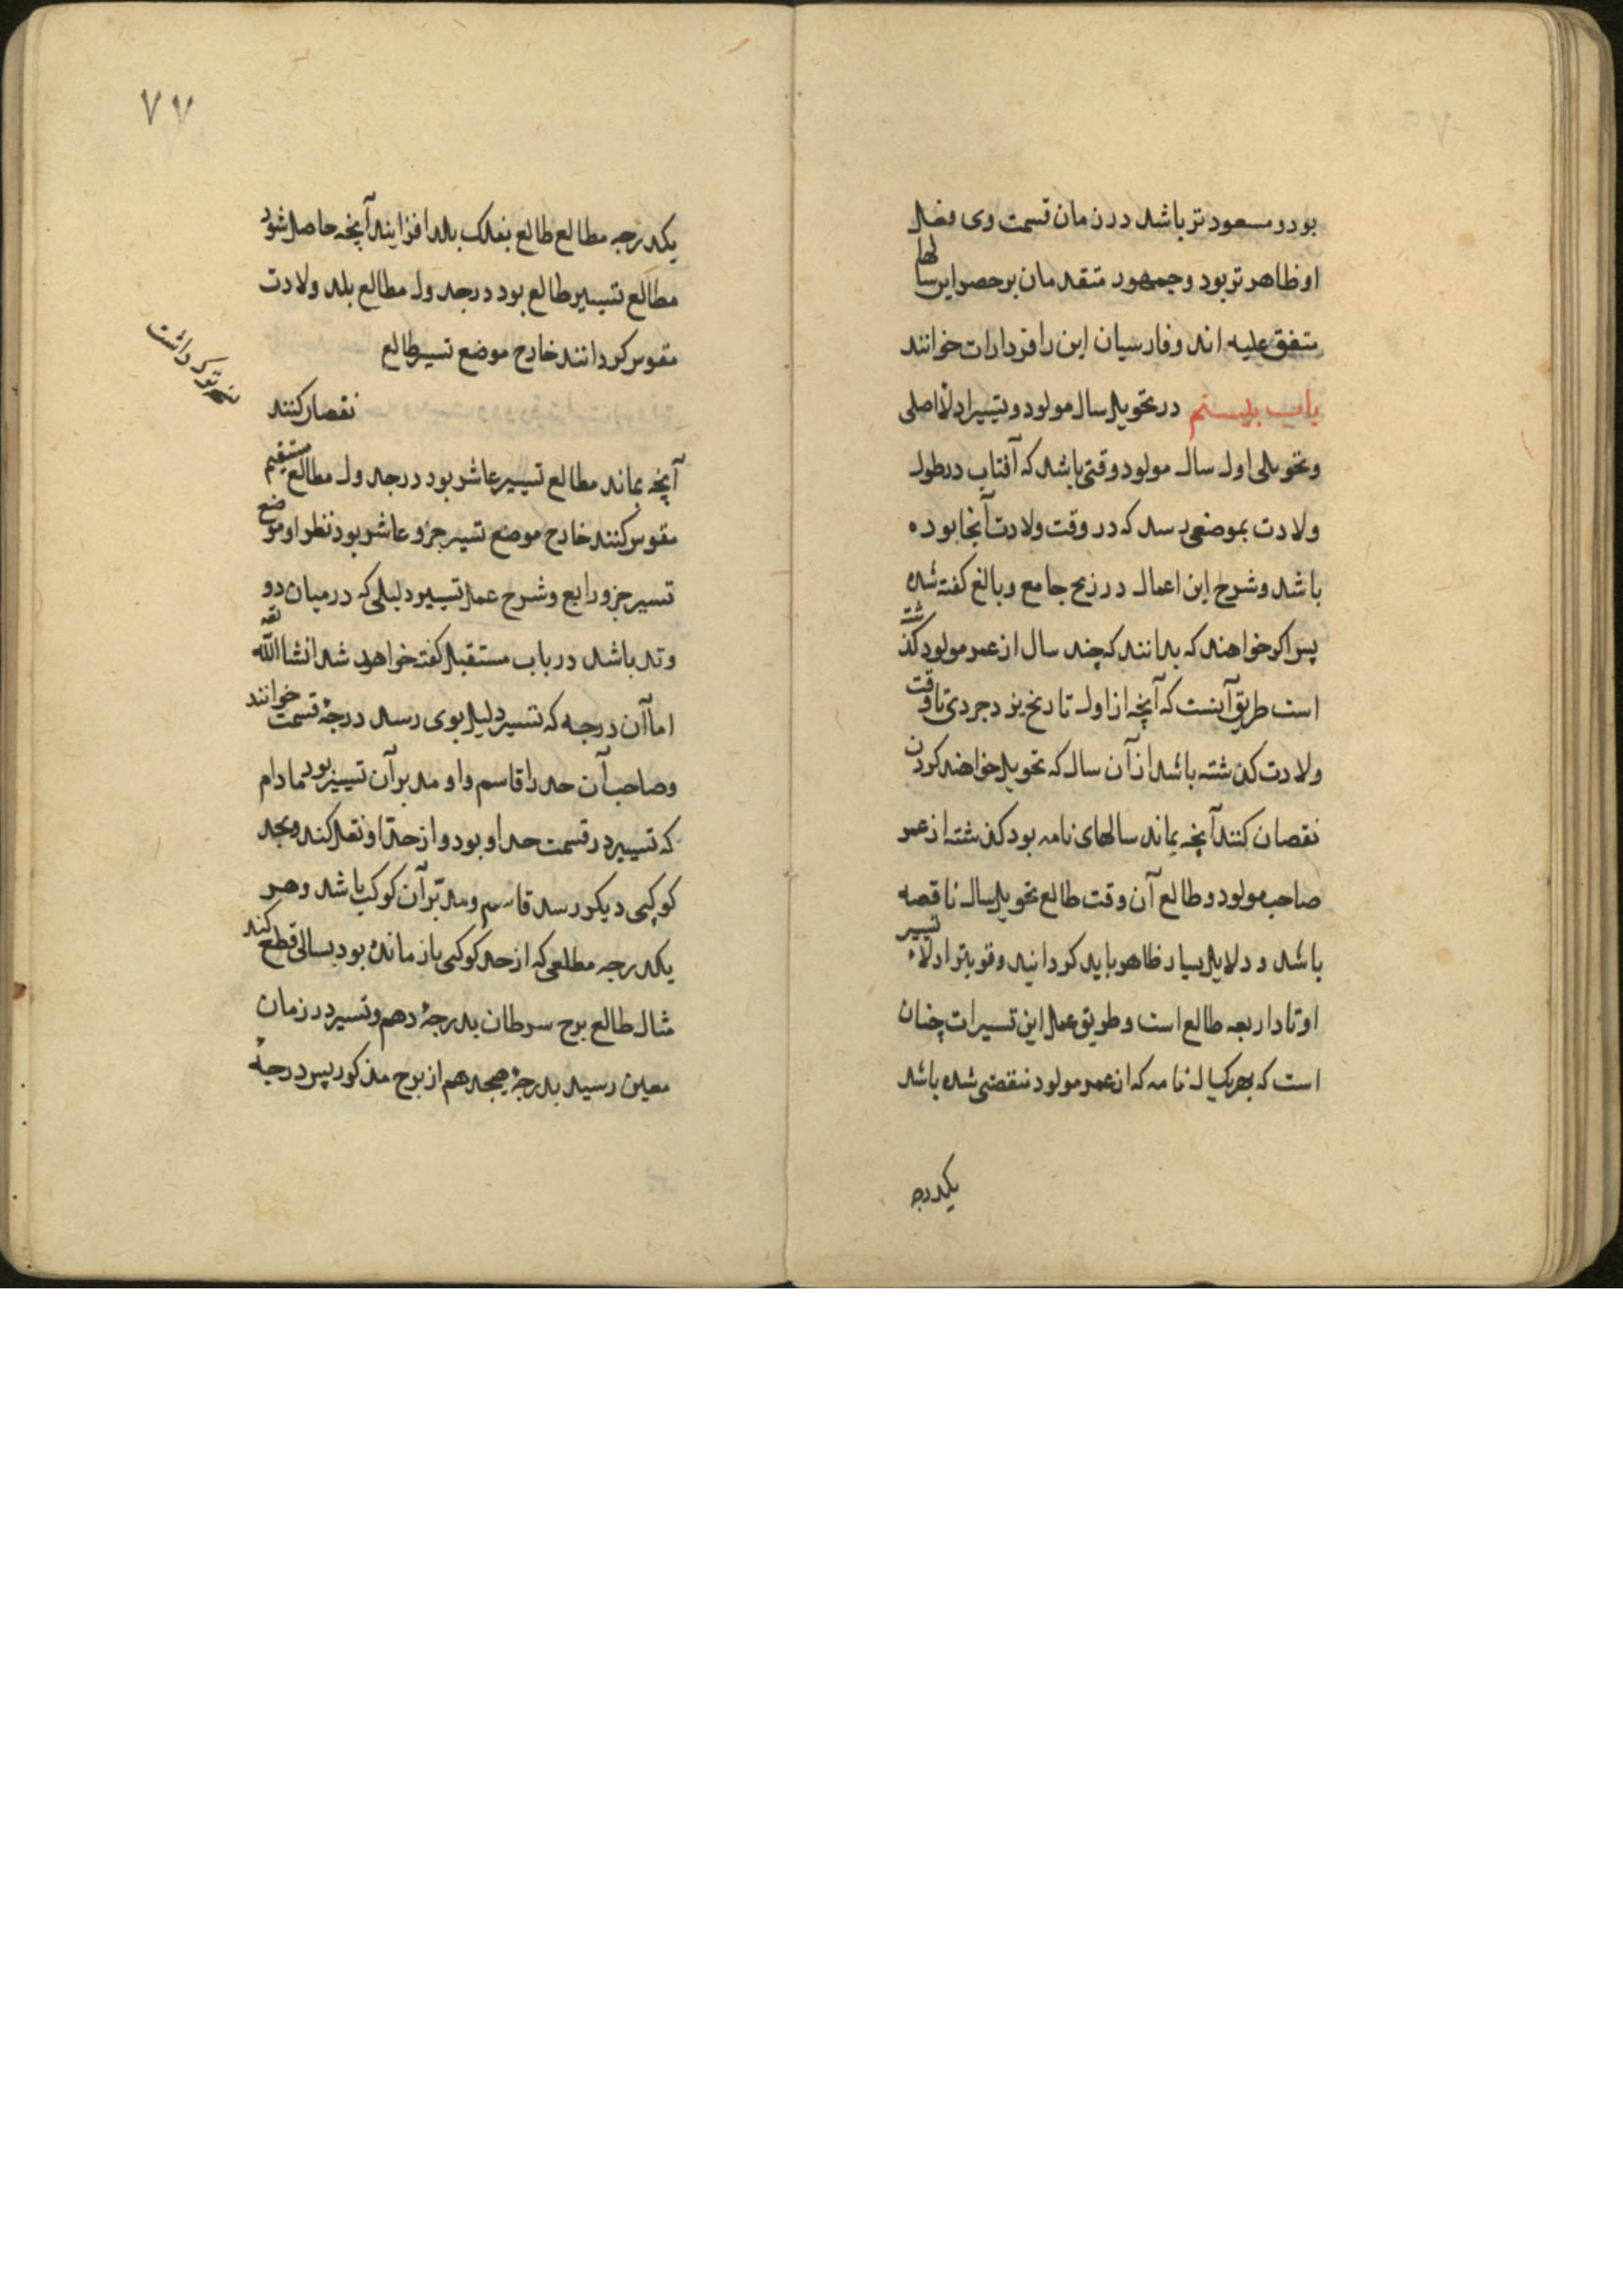 بود و مسعود تر باشد در زمان قسمت وی فعل
او ظاهر تر بود و جمهور متقدمان بر حصر این سالها
متفق علیه اند و فارسیان این را فردارات خوانند
باب بیستم در تحویل سال مولود و تسییر ادلاء اصلی
و تحویلی اول سال مولود وقتی باشد که آفتاب در طول
ولادت بموضعی رسد که در وقت ولادت آنجا بوده
باشد و شرح این اعمال در زیج جامع و بالغ گفته شده
پس اگر خواهند که بدانند که چند سال از عمر مولود گذشته
است طریق آنست که آنچه از اول تاریخ یزدجردی تا وقت
ولادت گذشته باشد از آن سال که تحویل خواهند کردن
نقصان کنند آنچه بماند سالهای تامه بود گذشته از عمر
صاحب مولود و طالع آن وقت طالع تحویل سال ناقصه
باشد و دلایل بسیار ظاهر باید گردانید و قویتر ادلاء تسییر
اوتاد اربعه طالع است و طریق عمل این تسییرات چنان
است که بهر یکسال تامه که از عمر مولود منقضی شده باشد
یکدرجه
٧٧
یکدرجه مطالع طالع بفلک بلد افزایند آنچه حاصل شود
مطالع تسییر طالع بود در جدول مطالع بلد ولادت
مقوس گردانند خارج موضع تسییر طالع
نقصان کنند
آنچه بماند مطالع تسییر عاشر بود در جدول مطالع مستقیم
مقوس کنند خارج موضع تسییر جزو عاشر بود نظر او موضع
تسییر جزو رابع و شرح عمل تسییر دلیلی که در میان دو
وتد باشد در باب مستقبل گفته خواهد شد انشاالله تعه
اما آن درجه که تسییر دلیل بوی رسد درجهٔ قسمت خوانند
و صاحب آن حد را قاسم و او مدبر آن تسییر بود مادام
که تسییر در قسمت حد او بود و از حد او نقل کند و بحد
کوکبی دیگر رسد قاسم و مدبر آن کوکب باشد و هر
یکدرجه مطلعی که از حد کوکبی باز مانده بود بسالی قطع کند
مثال طالع برج سرطان بدرجهٔ دهم و تسییر در زمان
معین رسید بدرجهٔ هیجدهم از برج مذکور پس درجهٔ